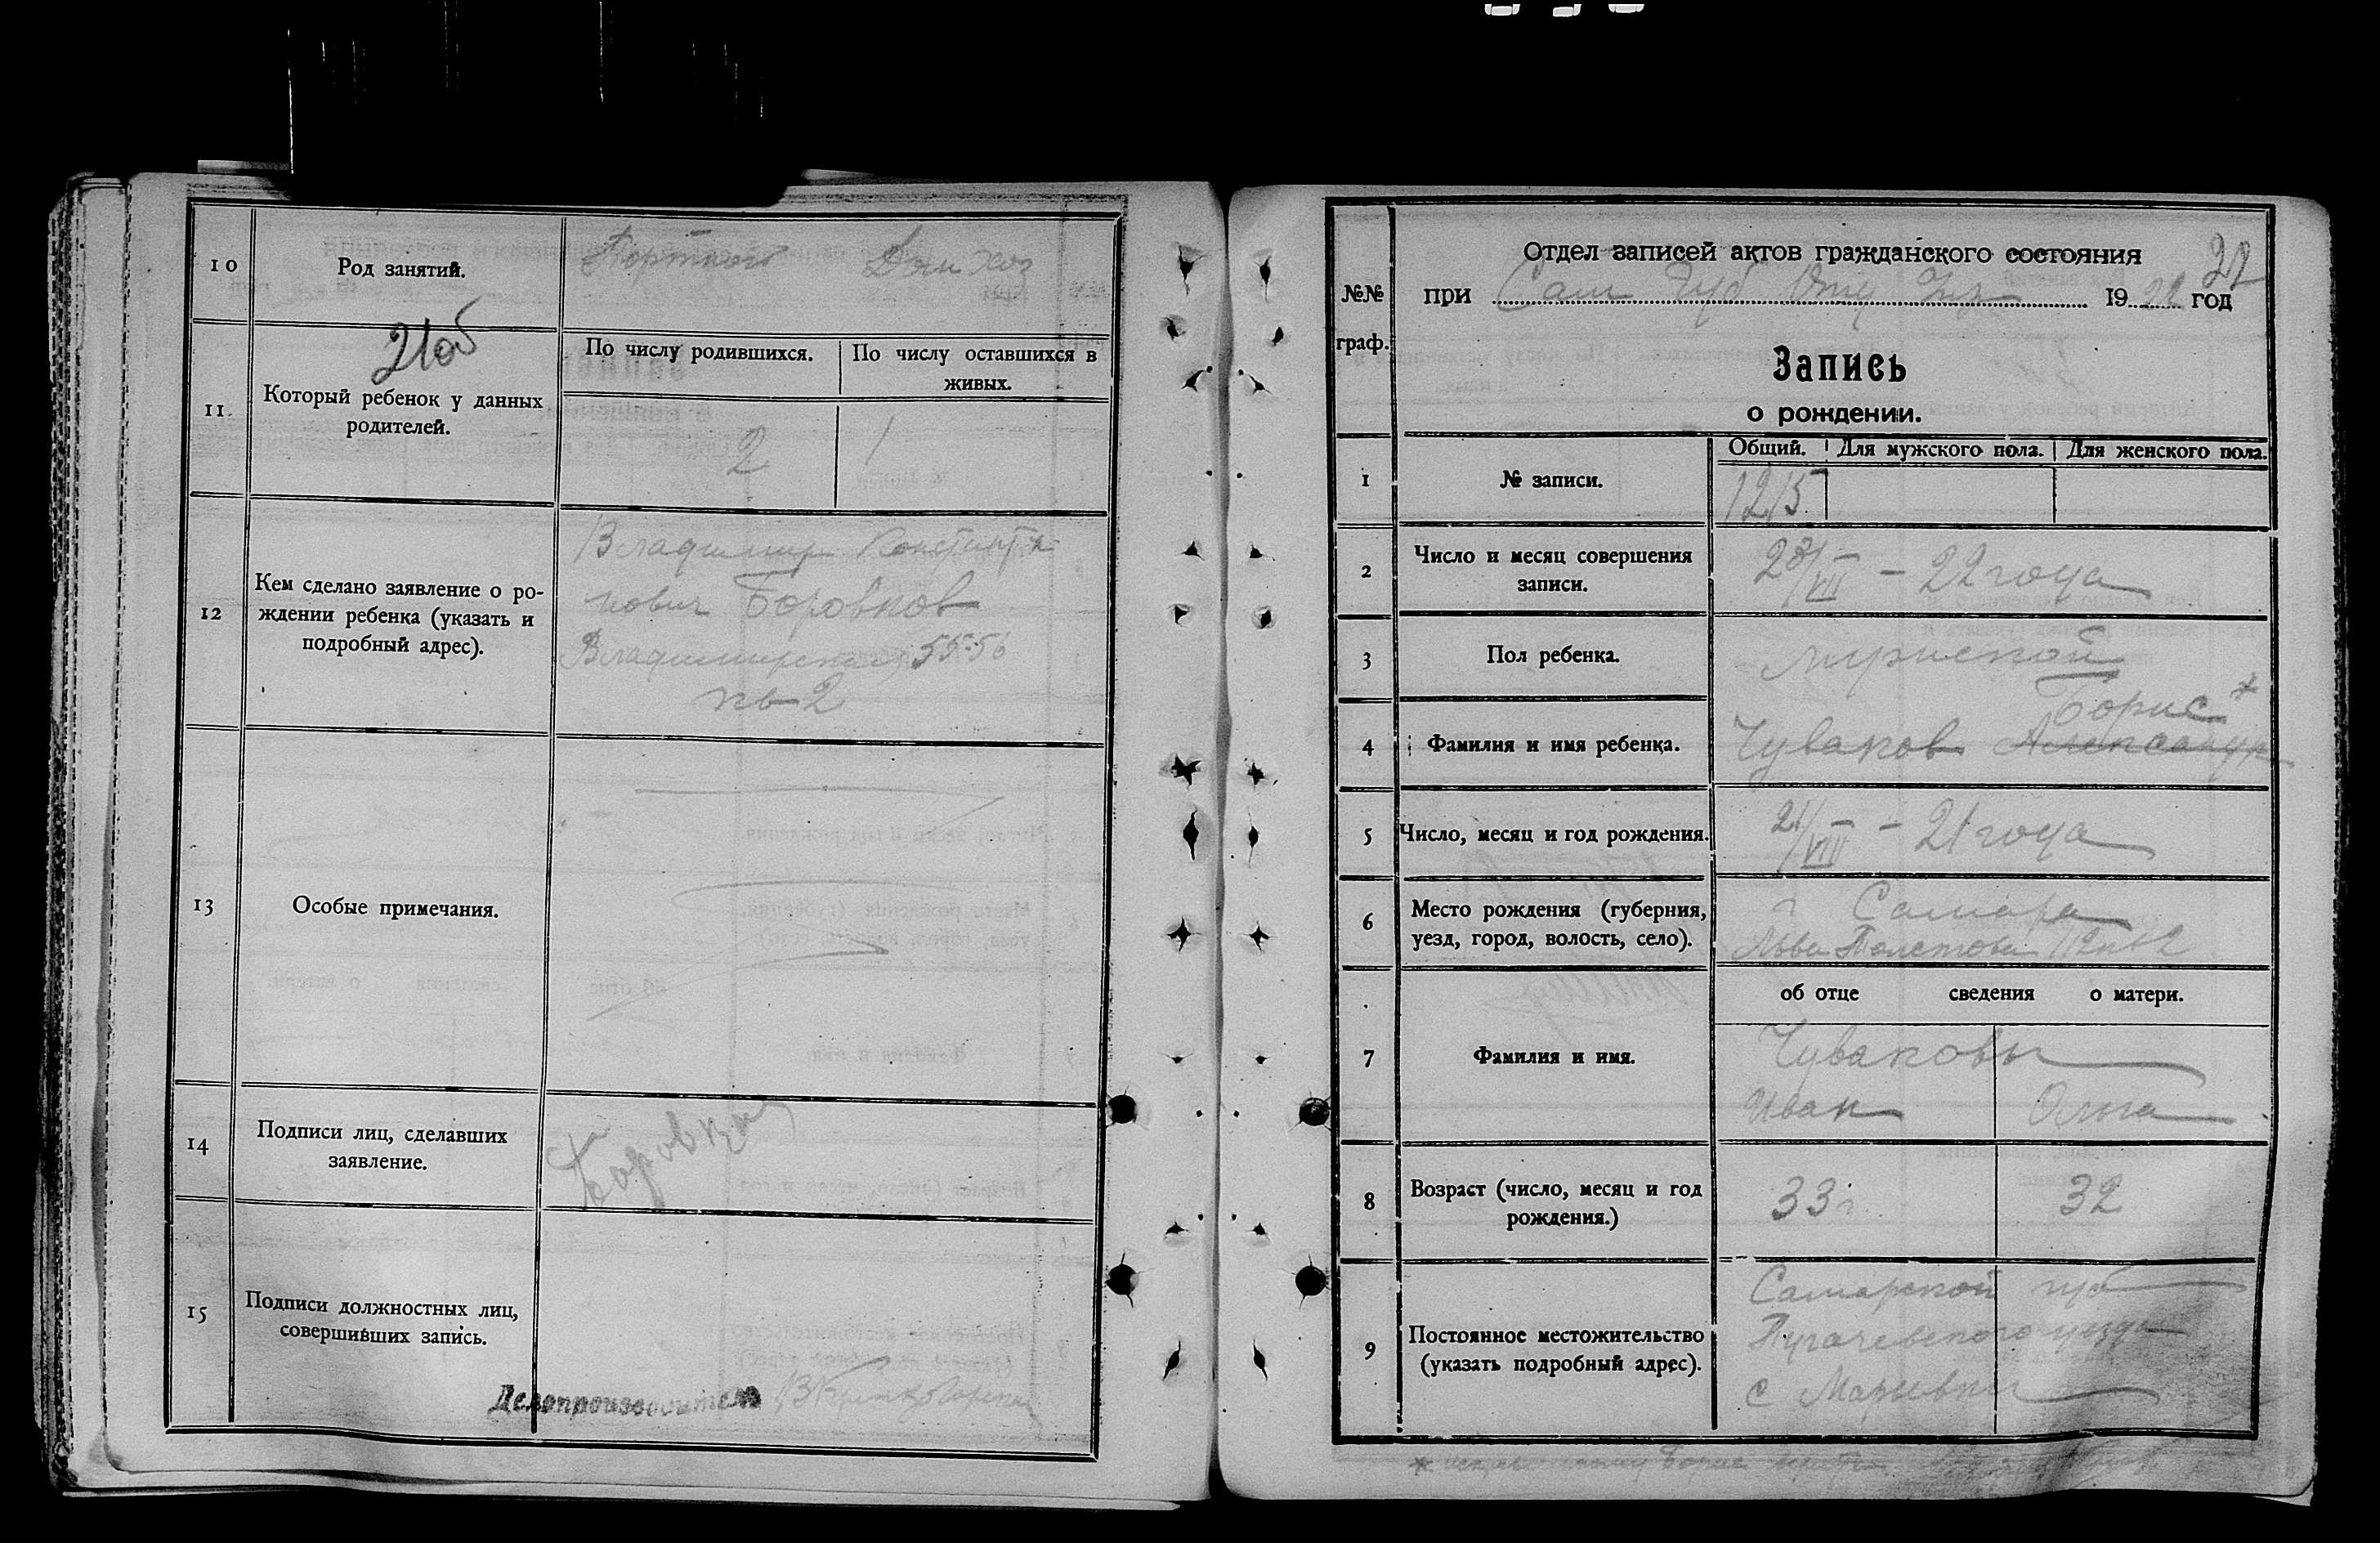 10
Род занятий.
Портной
Дом хоз
21об
11.
Который ребенок у данных
родителей.
По числу родившихся.
По числу оставшихся в
живых.
2
1
12
Кем сделано заявление о ро-
ждении ребенка (указать и
подробный адрес).
Владимир Константи
нович Боровков
Владимирская 55-56
кв 2
13
Особые примечания.
14
Подписи лиц, сделавших
заявление.
Боровков
15
Подписи должностных лиц,
совершивших запись.
Делопроизводитель
№№
граф.
Отдел записей актов гражданского состояния
22
при Сам Губ Отд 1922 год
Запись
о рождении.
1
№ записи.
Общий. Для мужского пола. Для женского пола.
1215
2
Число и месяц совершения
записи.
23/VII - 22 года
3
Пол ребенка.
мужской
4
Фамилия и имя ребенка.
Борис *
Чуваков Александр
5
Число, месяц и год рождения.
21/VIII - 21 года
6
Место рождения (губерния,
уезд, город, волость, село).
г Самара
Льва Толстова
об отце сведения о матери.
7
Фамилия и имя.
Чуваковы
Иван Ольга
8
Возраст (число, месяц и год
рождения.)
33 г. 32
9
Постоянное местожительство
(указать подробный адрес).
Самарской губ
Пугачевского уезда
с Марьевки
* Борис